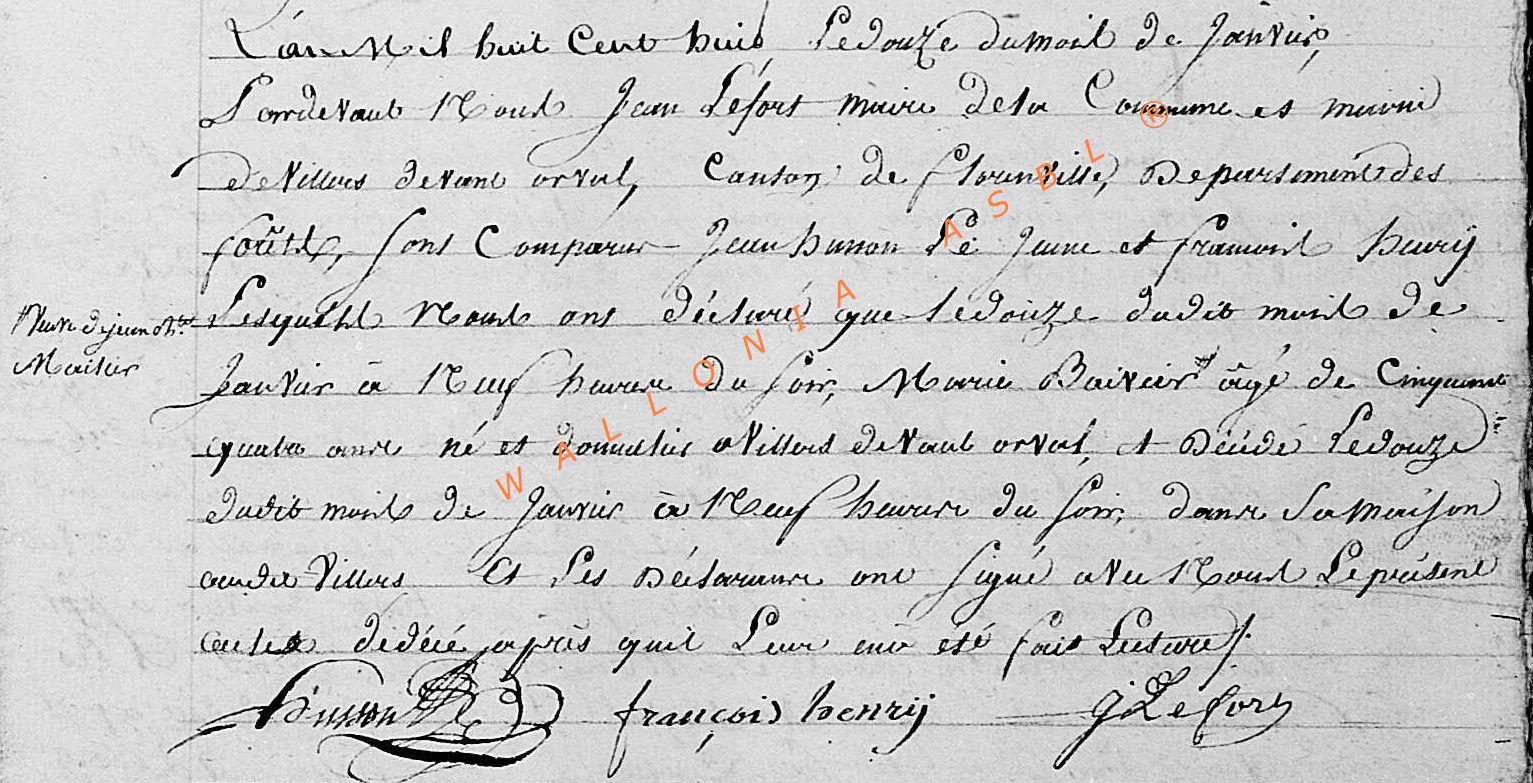 L'an Mil huit Cent huit Le douze du mois de Janvier,
Pardevant Nous Jean Lefort maire de la Commune et mairie
de Villers devant orval, Canton de florenville, Departement des
forêts, sont Comparus Jean husson Le Jeune et francois henry
Lesquels Nous ont déclaré que le douze dudit mois de
Veuve de jean
Mailier
Janvier à Neuf heures du soir, Marie Baivier # âgé de Cinquante
quatre ans né et domicilié a Villers devant orval, et décédé Le douze
dudit mois de Janvier à Neuf heures du soir, dans Sa maison
audit Villers Et Les Déclarans ont signé avec Nous Le présent
acte de décé après quil Leur en été fait Lecture /.
husson françois henrÿ J Lefort
WALLONIA ASBL ®